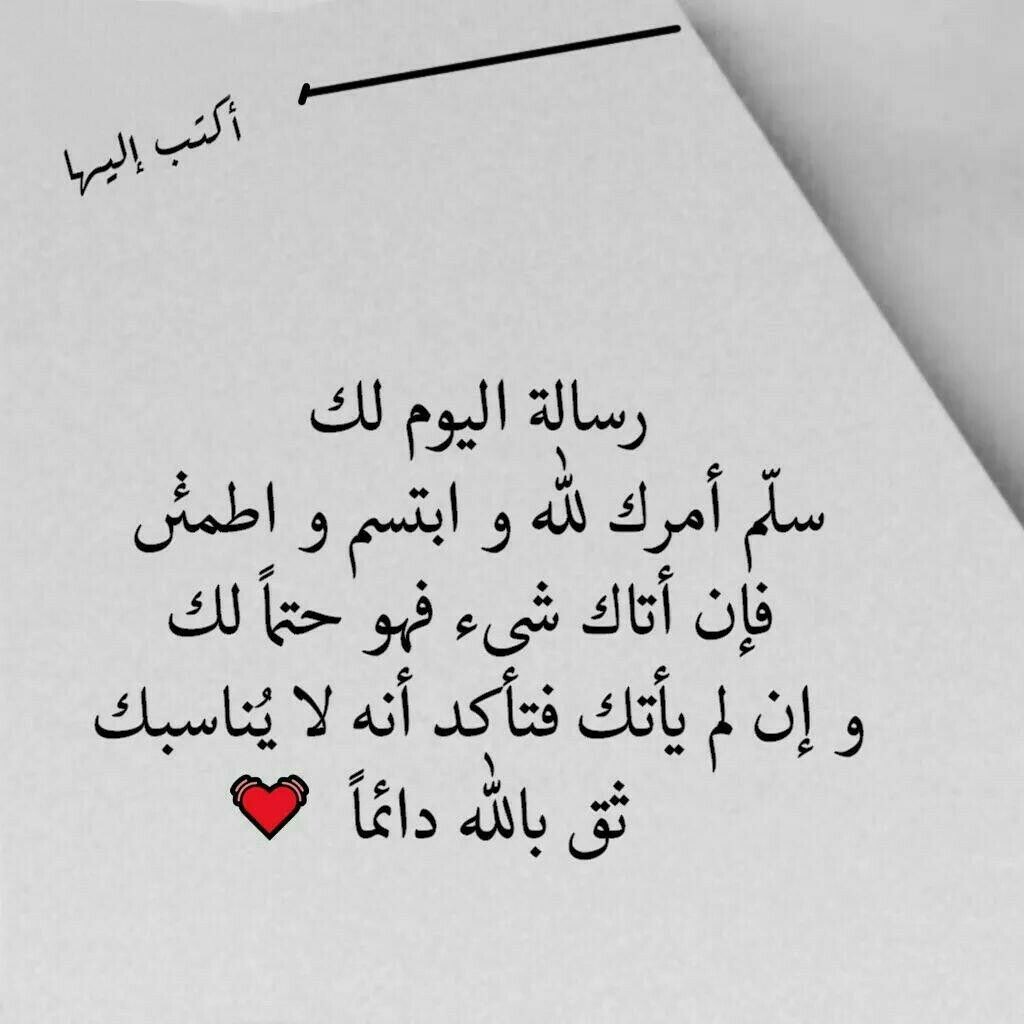 أكتب إليها
رسالة اليوم لك
سلّم أمرك لله و ابتسم و اطمئن
فإن أتاك شىء فهو حتماً لك
و إن لم يأتك فتأكد أنه لا يُناسبك
ثق بالله دائماً 💓